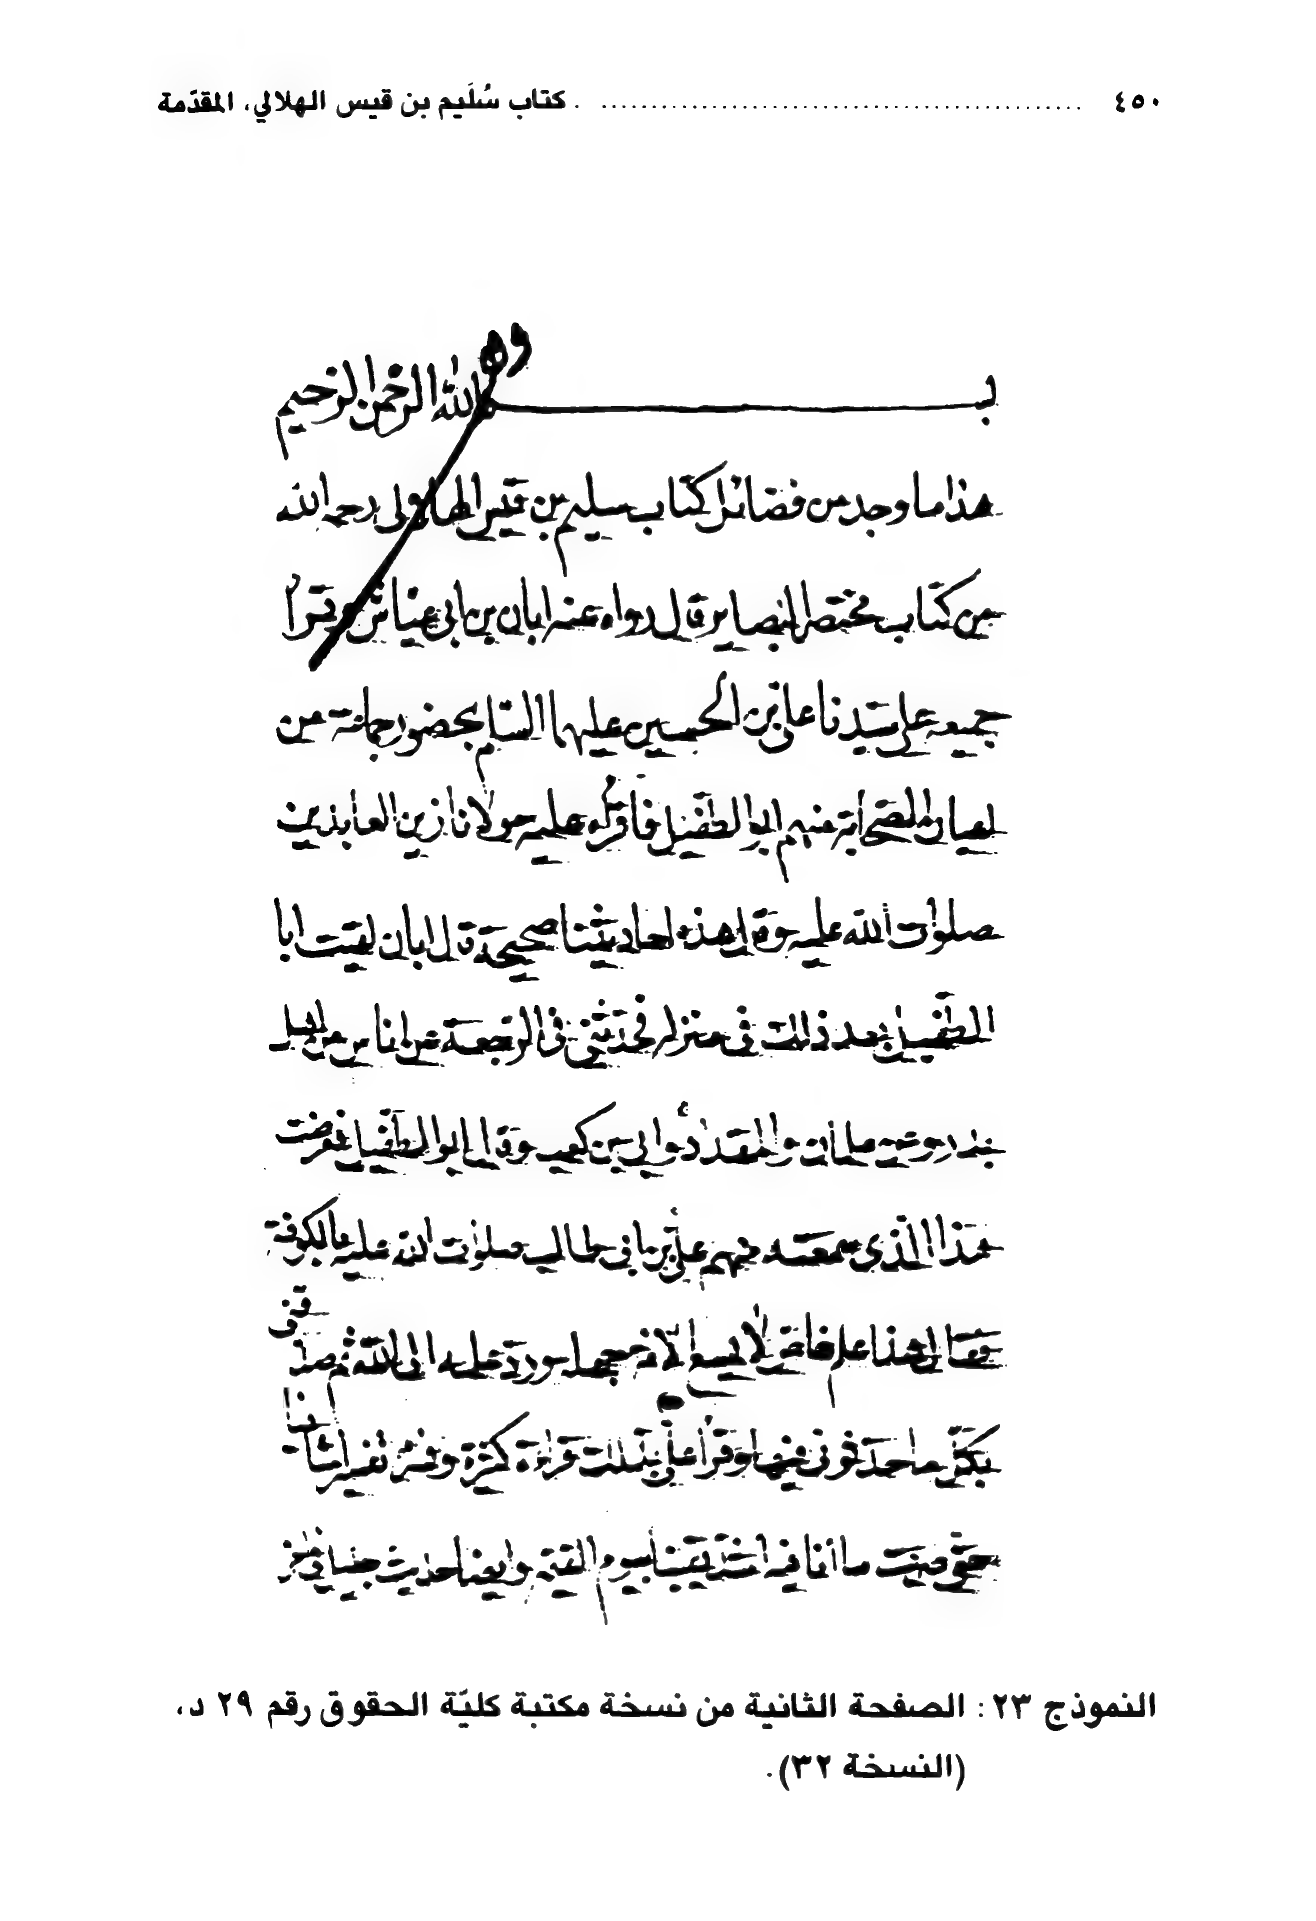 ٤٥٠ ........ كتاب سُلَيم بن قيس الهلالي، المقدّمة
وه
بسم الله الرحمن الرحيم
هذا ما وجد من فضائل كتاب سليم بن قيس الهلالى رحمه الله
من كتاب مختصر البصاير قال رواه عنه ابان بن ابى عياش وقرأ
جميعه على سيدنا على بن الحسين عليهما السلم بحضور جماعة من
اعيان الصحابة منهم ابو الطفيل فاقره عليه مولانا زين العابدين
صلوات الله عليه وقال هذه احاديثنا صحيحة قال ابان لقيت ابا
الطفيل بعد ذلك فى منزله فحدثنى فى الرجعة عن اناس من اهل
بدر وعن سلمان والمقداد وابى بن كعب وقال ابو الطفيل فعرضت
هذا الذى سمعته منهم على بن ابى طالب صلوات الله عليه بالكوفة
فقال هذا علم خاص لا يسع الامة جهله ورد علمه الى الله ثم صدقنى
بكل ما حدثونى فيها وقرأ على بذلك قراءة كثيرة وفسره تفسيرا شافيا
حتى صرت ما انا فيه اشد يقينا بيوم القيمة
النموذج ٢٣: الصفحة الثانية من نسخة مكتبة كليّة الحقوق رقم ٢٩ د،
(النسخة ٣٢).